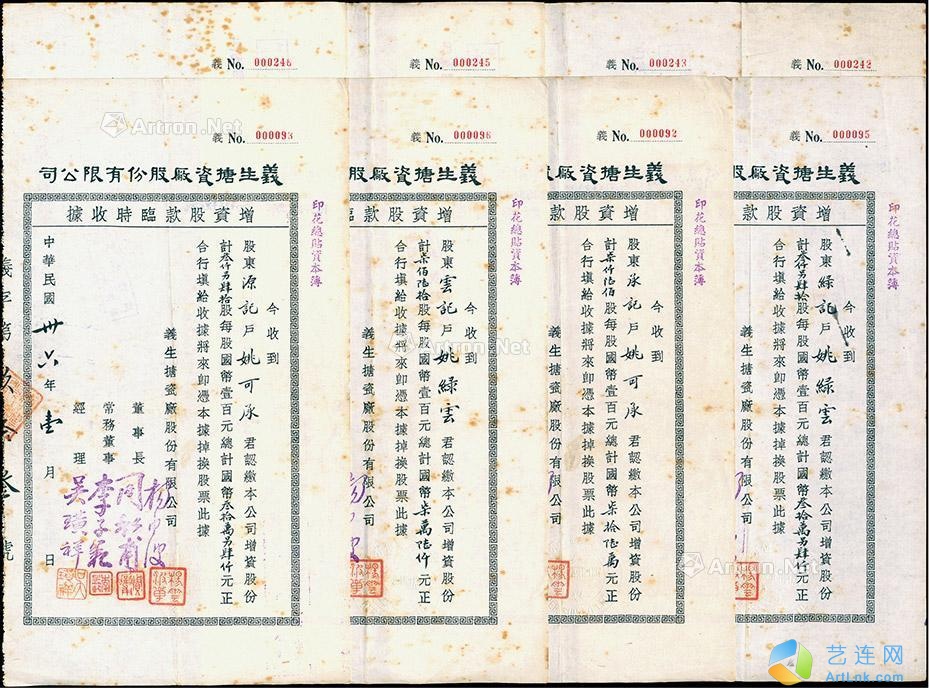 義 No. 000246
義 No. 000245
義 No. 000243
義 No. 000242
義 No. 000093
義生搪資廠股份有限公司
增資股款臨時收據
今收到
股東源記戶姚可承君認繳本公司增資股份
計叁仟另肆拾股每股國幣壹百元總計國幣叁拾萬另肆仟元正
合行填給收據將來卽憑本據掉換股票此據
義生搪瓷廠股份有限公司
董事長
常務董事
經理
李子
吳瑞祥
中華民國卅六年壹月 日
號
義 No. 000096
義生搪資廠股
增資股款臨
印花總貼資本簿
今收到
股東雲記戶姚綠雲君認繳本公司增資股份
計柒佰陸拾股每股國幣壹百元總計國幣柒萬陸仟元正
合行填給收據將來卽憑本據掉換股票此據
義生搪瓷廠股份有限公司
義 No. 000092
義生搪資廠股
增資股款
印花總貼資本簿
今收到
股東承記戶姚可承君認繳本公司增資股份
計柒仟陸佰股每股國幣壹百元總計國幣柒拾陸萬元正
合行填給收據將來卽憑本據掉換股票此據
義生搪瓷廠股份有限公司
義 No. 000095
義生搪資廠股
增資股款
印花總貼資本簿
今收到
股東綠記戶姚綠雲君認繳本公司增資股份
計叁仟另肆拾股每股國幣壹百元總計國幣叁拾萬另肆仟元正
合行填給收據將來卽憑本據掉換股票此據
義生搪瓷廠股份有限公司
印花總貼資本簿
Artron.Net
Artron.Net
Artron.Net
Artron.Net
艺连网
ArtLnk.com